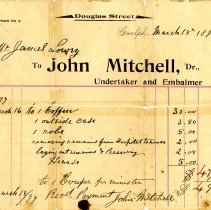 Douglas Street
Guelph, March 15 189
Mr James Lowry
To John Mitchell, Dr.,
Undertaker and Embalmer
97
March 14 To 1 Coffin 30.00
1 outside case 3.00
1 robe 5.00
removing remains from Hospital to house 2.00
2.00
Hearse 5.00
to 1 Coupe for minister
March 18/97 Recd Payment John Mitchell $47